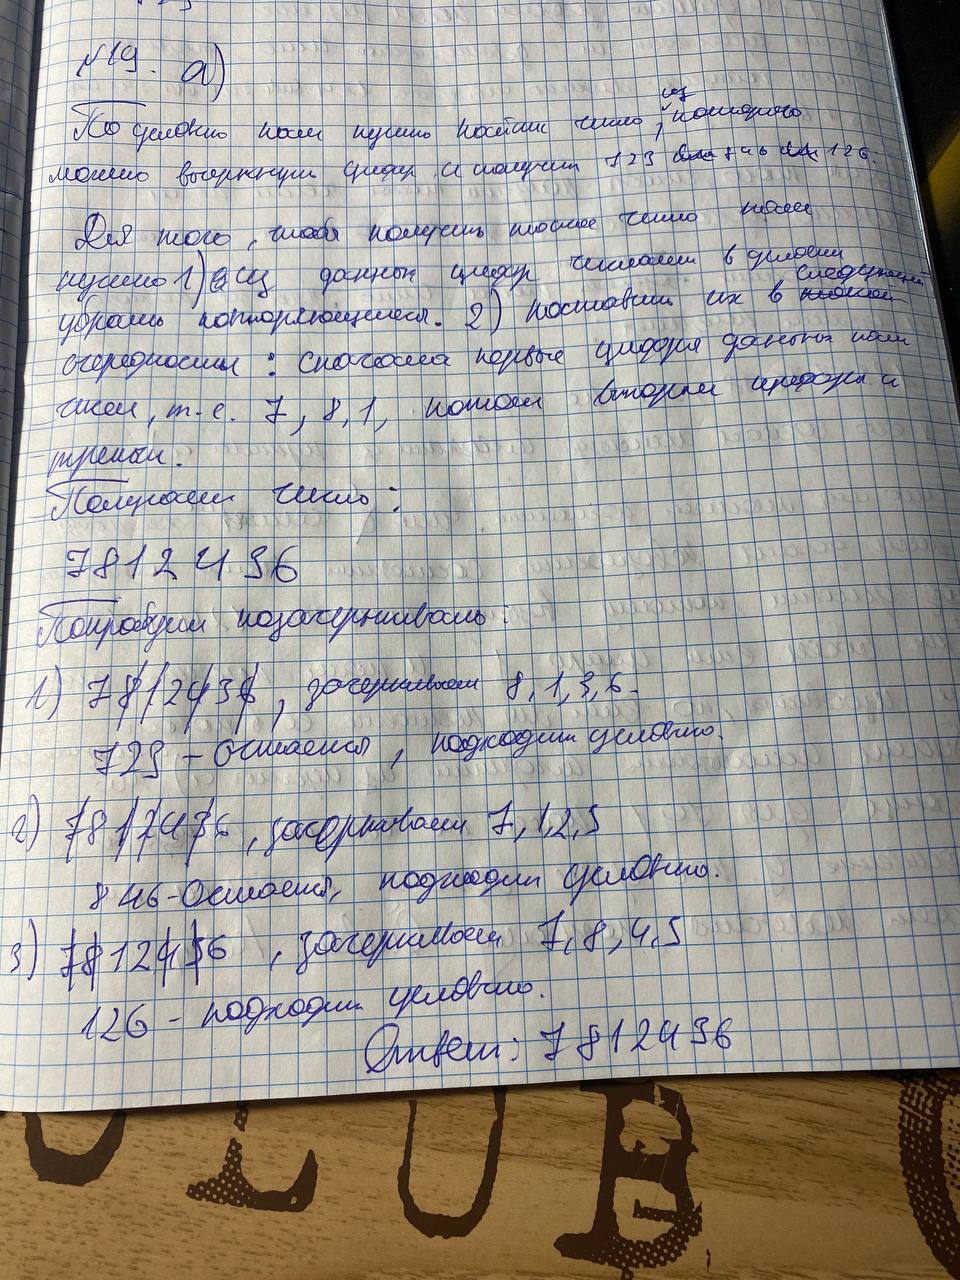 №19. а)
По условию нам нужно найти число, из которого
можно вычеркнуть цифры и получить 729 или 846 или 126.
Для того, чтобы получить такое число нам
нужно 1) из данных цифр числам в условии
убрать повторяющиеся. 2) поставить их в следующей
очередности: сначала первые цифры данных нам
чисел, т.е. 7, 8, 1, потом вторые цифры и
третьи.
Получаем число:
7812496
Попробуем позачеркивать:
1) 7812496, зачеркиваем 8, 1, 9, 6.
729 - Остается, подходит условию.
2) 7812496, зачеркиваем 7, 1, 2, 9
846 - Остается, подходит условию.
3) 7812496, зачеркиваем 7, 8, 4, 9
126 - подходит условию.
Ответ: 7812496
CLUB